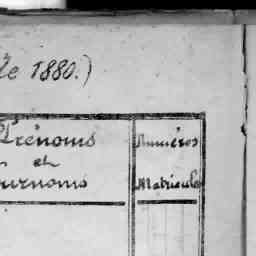 de 1880.)
Prénoms
et
surnoms
Numéros
Matricule